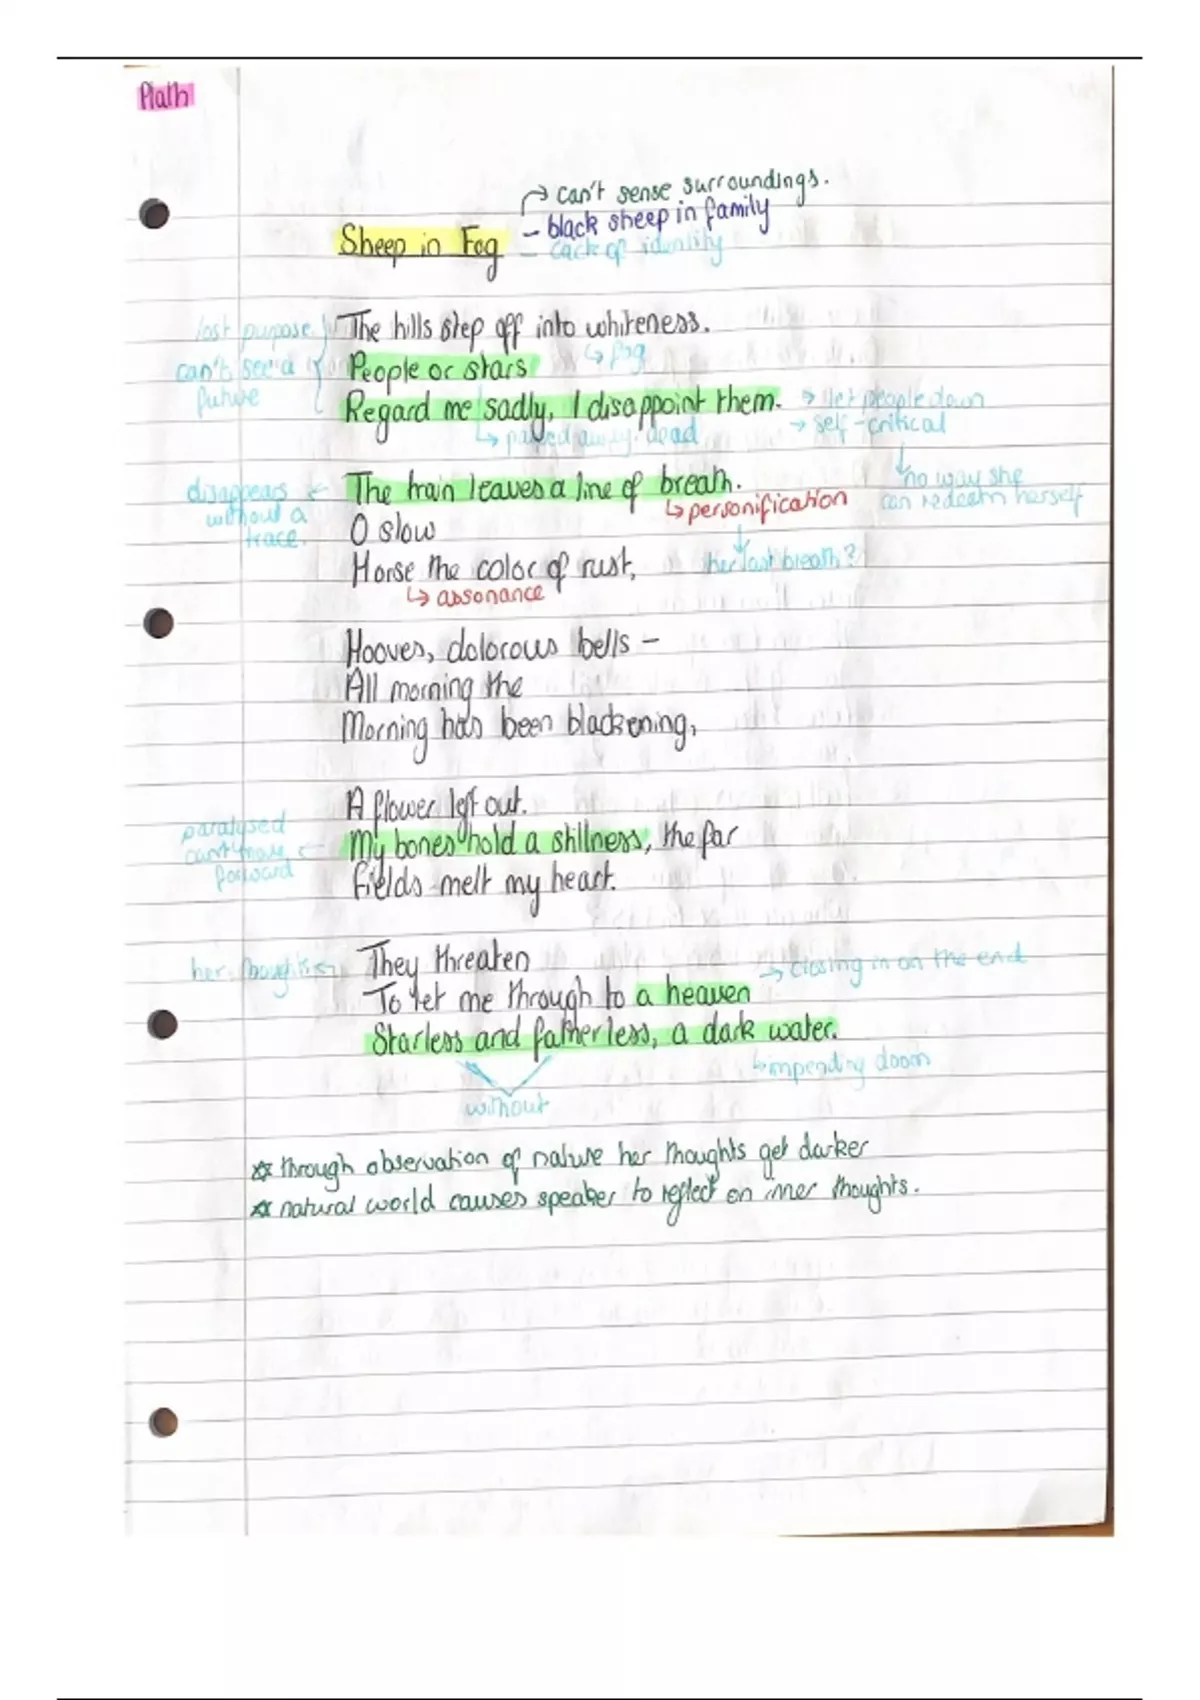 Plath
→ can't sense surroundings.
- black sheep in family
Sheep in Fog - lack of identity
lost purpose The hills step off into whiteness.
↳ fog
can't see a People or stars
future Regard me sadly, I disappoint them. → let people down
↳ passed away, dead → self-critical
↓ no way she
can redeem herself
disappears ← The train leaves a line of breath.
without a ↳ personification
trace. O slow
↓ her last breath?
Horse the color of rust,
↳ assonance
Hooves, dolorous bells –
All morning the
Morning has been blackening,
A flower left out.
paralysed My bones hold a stillness, the far
can't move ←
forward Fields melt my heart.
her thoughts ← They threaten → closing in on the end
To let me through to a heaven
Starless and fatherless, a dark water.
↳ impending doom
without
☆ through observation of nature her thoughts get darker
☆ natural world causes speaker to reflect on inner thoughts.